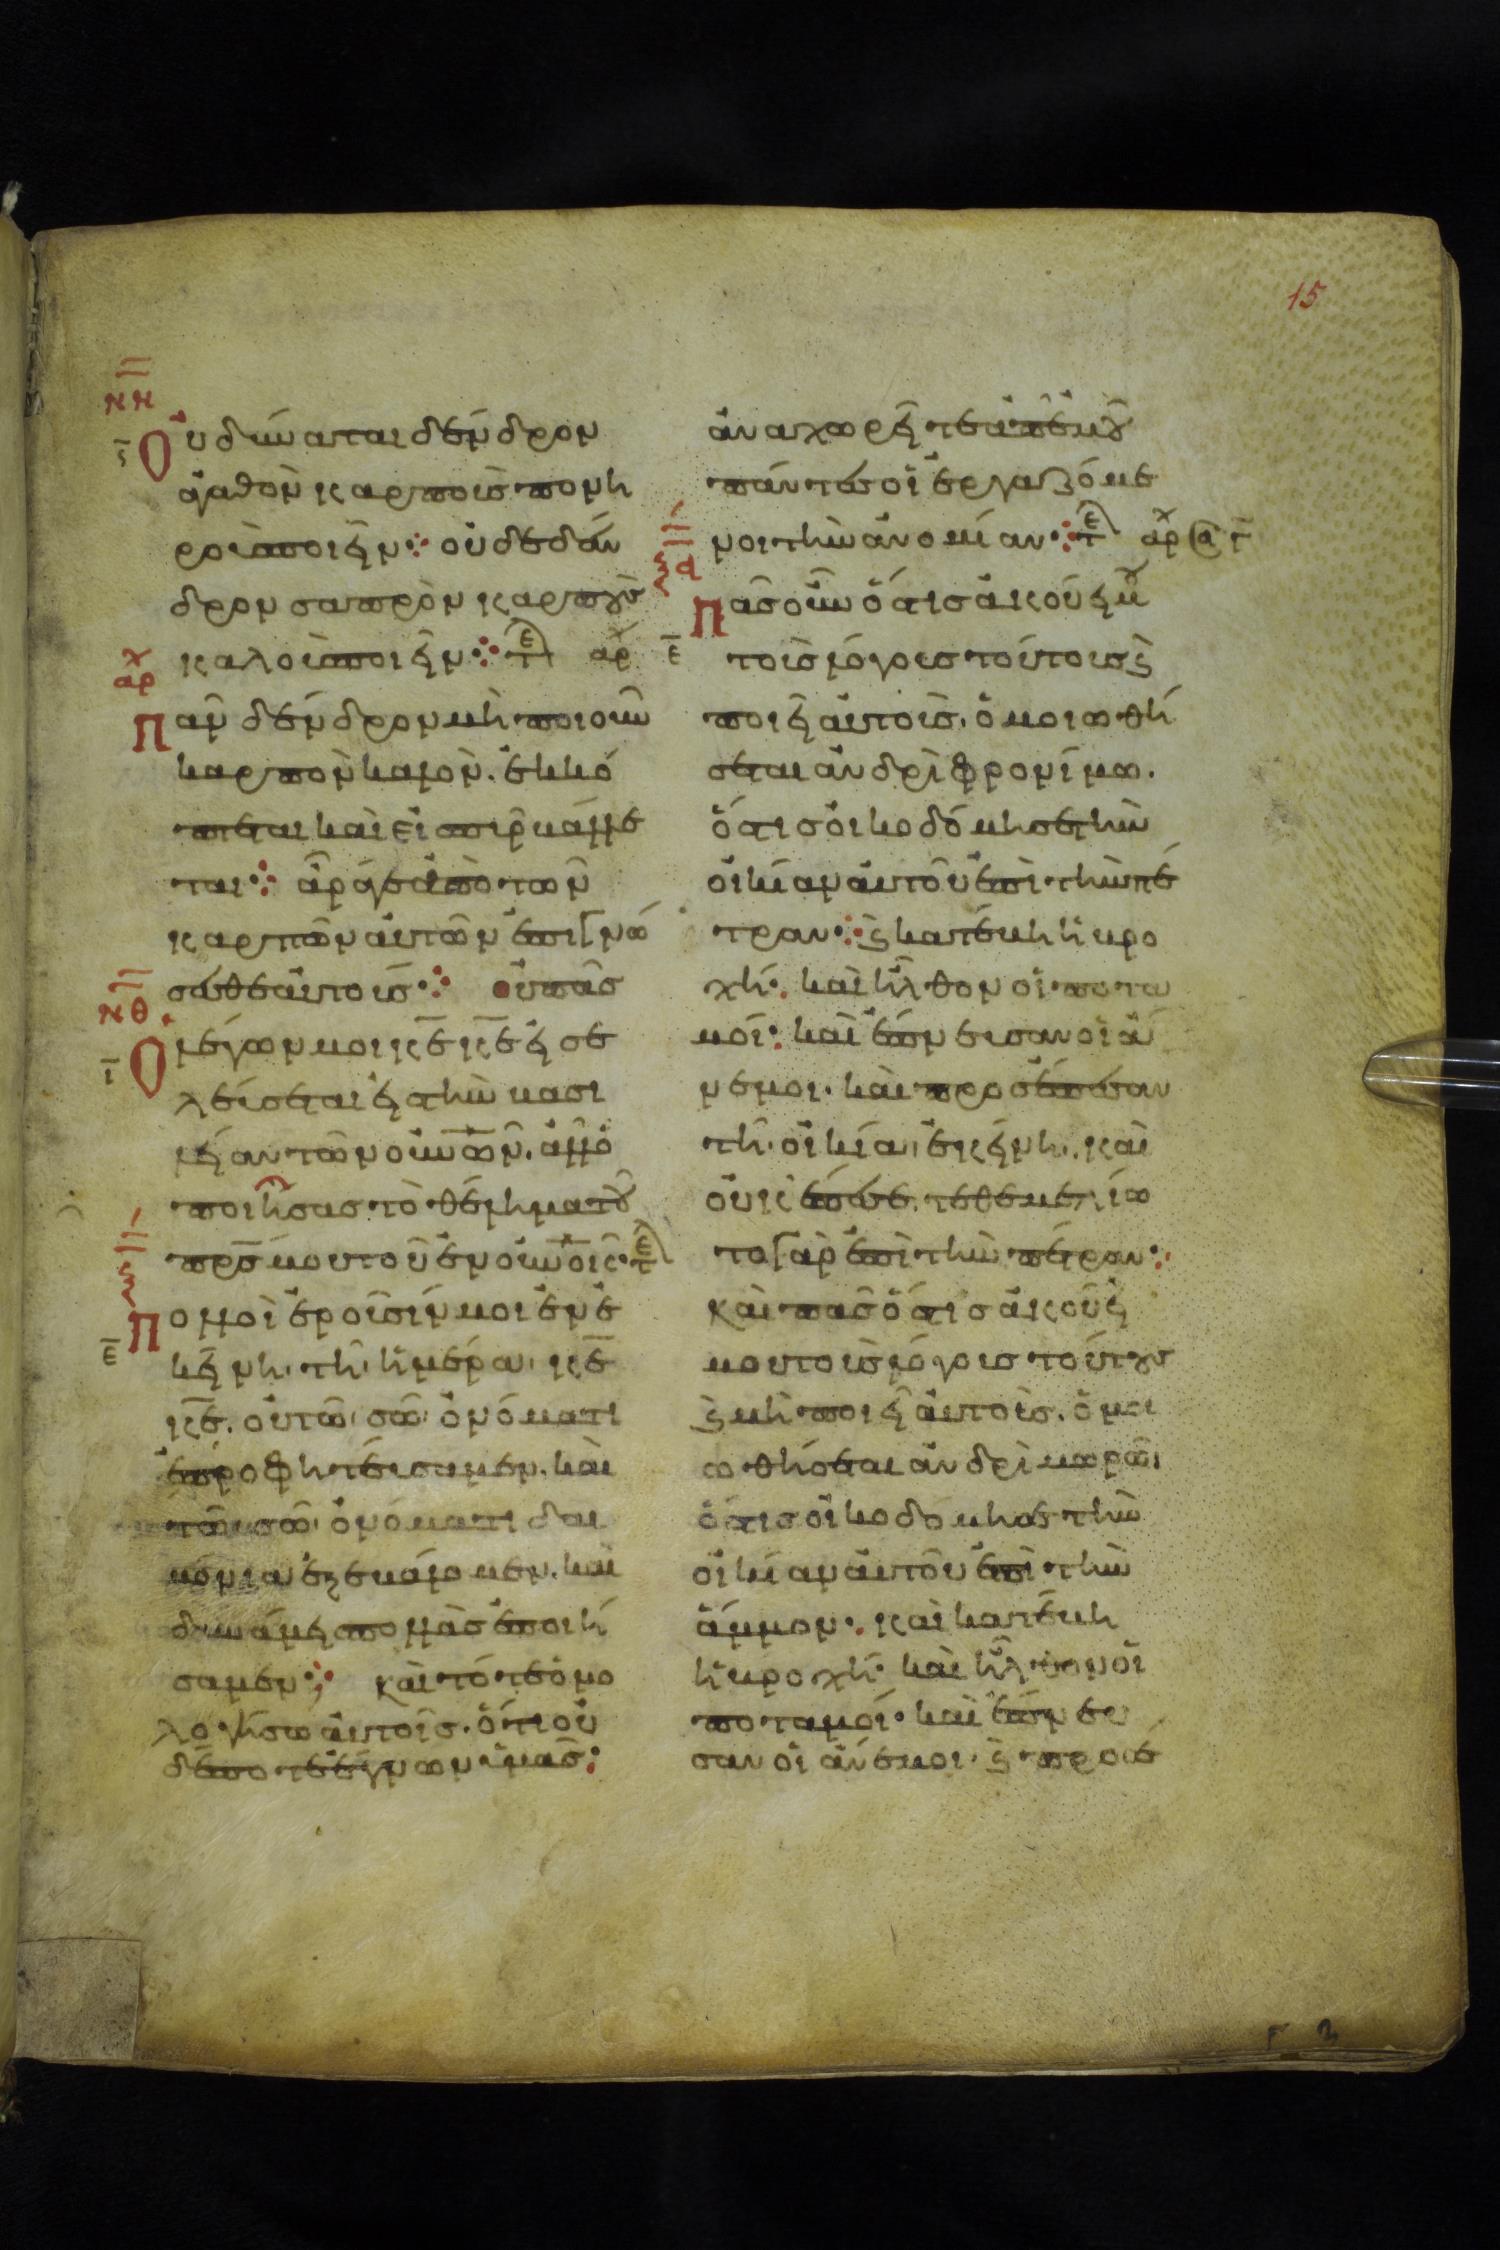 15
ΝΗ
Οὐ δύναται δένδρον
ἀγαθὸν καρποὺς πονη
ροὺς ποιεῖν· οὐδὲ δέν
δρον σαπρὸν καρποὺς
καλοὺς ποιεῖν· τε αρχ
αρχ
Πᾶν δένδρον μὴ ποιοῦν
καρπὸν καλὸν. ἐκκό
πτεται καὶ εἰς πῦρ βάλλε
ται· ἄρα γε ἀπὸ τῶν
καρπῶν αὐτῶν ἐπιγνώ
σεσθε αὐτοῖς· οὐ πᾶς
ΝΘ
Ὁ λέγων μοι κε κε εἰσε
λεύσεται εἰς τὴν βασι
λείαν τῶν οὐνῶν. ἀλλ' ὁ
ποιήσας τὸ θέλημα τοῦ
πρσ μου τοῦ ἐν οὐνοις· τε
Ξ
Πολλοὶ ἐροῦσίν μοι ἐν ἐ
κείνη τῆ ἡμέρα κε
κε. οὐ τῶ σῶ ὀνόματι
ἐπροφητεύσαμεν. καὶ
τῶ σῶ ὀνόματι δαι
μόνια ἐξεβάλομεν. καὶ
δυνάμεις πολλὰς ἐποιή
σαμεν· καὶ τότε ὁμο
λογήσω αὐτοῖς. ὅτι οὐ
δέποτε ἔγνων ὑμᾶς·
ἀναχωρεῖτε ἀπ' ἐμοῦ
πάντες οἱ ἐργαζόμε
νοι τὴν ἀνομίαν· τε αρχ
ΞΑ
Πᾶς οὖν ὅστις ἀκούει μου
τοὺς λόγους τούτους ϗ
ποιεῖ αὐτοὺς. ὁμοιωθή
σεται ἀνδρὶ φρονίμω.
ὅστις ὠικοδόμησε τὴν
οἰκίαν αὐτοῦ ἐπὶ τὴν πέ
τραν· ϗ κατέβη ἡ βρο
χή· καὶ ἦλθον οἱ ποτα
μοί· καὶ ἔπνευσαν οἱ ἄ
νεμοι. καὶ προσέπεσαν
τῆ οἰκία ἐκείνη. καὶ
οὐκ ἔπεσε. τεθεμελίω
το γὰρ ἐπὶ τὴν πέτραν·
καὶ πᾶς ὅστις ἀκούει
μου τοὺς λόγους τούτους
ϗ μὴ ποιεῖ αὐτοὺς. ὁμοι
ωθήσεται ἀνδρὶ μωρῶ
ὅστις οἰκοδόμησε τὴν
οἰκίαν αὐτοῦ ἐπὶ τὴν
ἄμμον· καὶ κατέβη
ἡ βροχή· καὶ ἦλθον οἱ
ποταμοί· καὶ ἔπνευ
σαν οἱ ἄνεμοι. ϗ προσέ